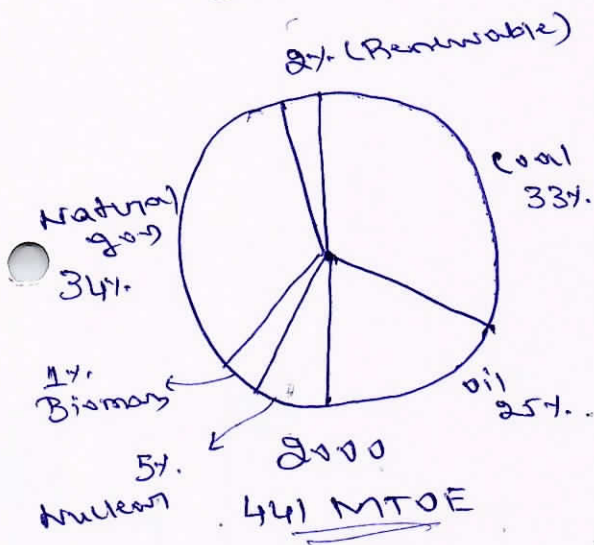 2%. (Renewable)
Coal
33%.
Natural
gas
34%.
1%.
Biomass
oil
25%.
5%.
Nuclear
2000
441 MTOE